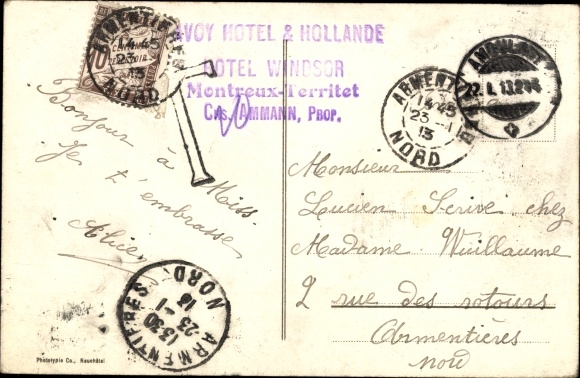 VOY HOTEL & HOLLANDE
HOTEL WINDSOR
Montreux-Territet
CH. AMMANN, PROP.
T
10
Bonjour à Miss.
Je t'embrasse
Alice
ARMENTIERES
14 45
23 -1
13
NORD
ARMENTIERES
14 45
23 -1
13
NORD
AMBULANT
ARMENTIERES
13 30
23 -1
13
NORD
Monsieur
Lucien Scrive chez
Madame Wuillaume
2 rue des rotours
Armentières
Nord
Phototypie Co., Neuchâtel